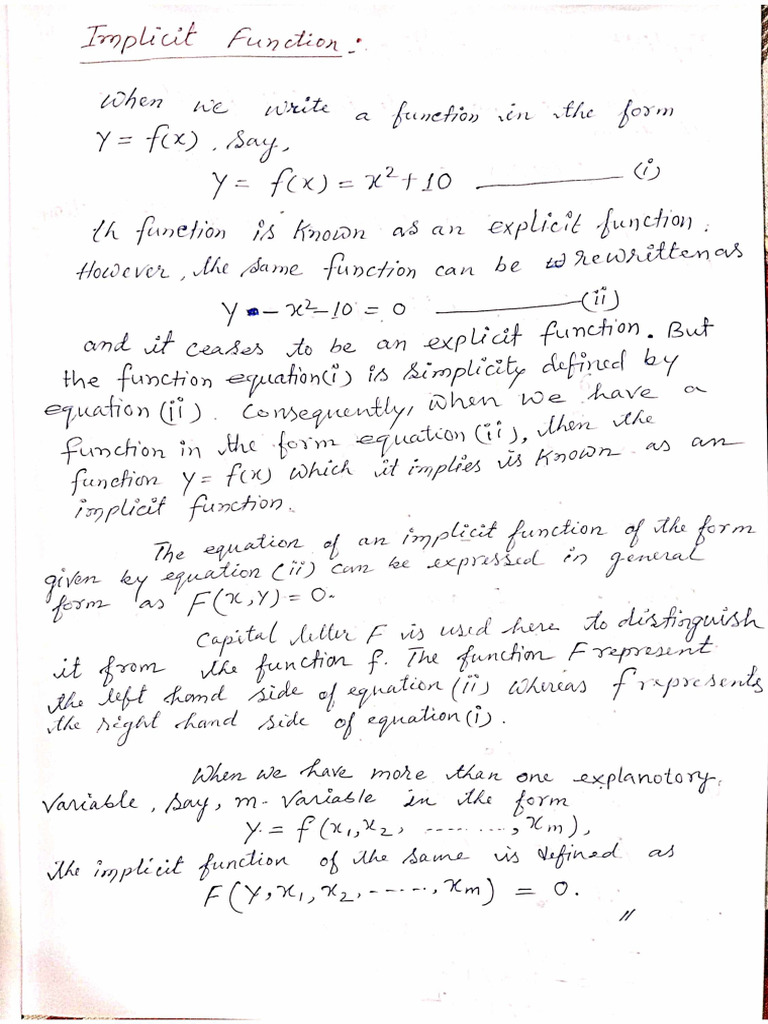 Implicit Function :
When we write a function in the form
Y = f(x). Say,
Y = f(x) = x² + 10 ———— (i)
th function is known as an explicit function.
However, the same function can be rewritten as
Y - x² - 10 = 0 ———— (ii)
and it ceases to be an explicit function. But
the function equation(i) is simplicity defined by
equation (ii). Consequently, when we have a
function in the form equation (ii), then the
function Y = f(x) which it implies is known as an
implicit function.
The equation of an implicit function of the form
given by equation (ii) can be expressed in general
form as F(x, Y) = 0.
Capital letter F is used here to distinguish
it from the function f. The function F represent
the left hand side of equation (ii) whereas f represents
the right hand side of equation (i).
When we have more than one explanotory
variable, say, m-variable in the form
Y = f(x₁, x₂, ........., xm),
the implicit function of the same is defined as
F(Y, x₁, x₂, ------, xm) = 0.
//